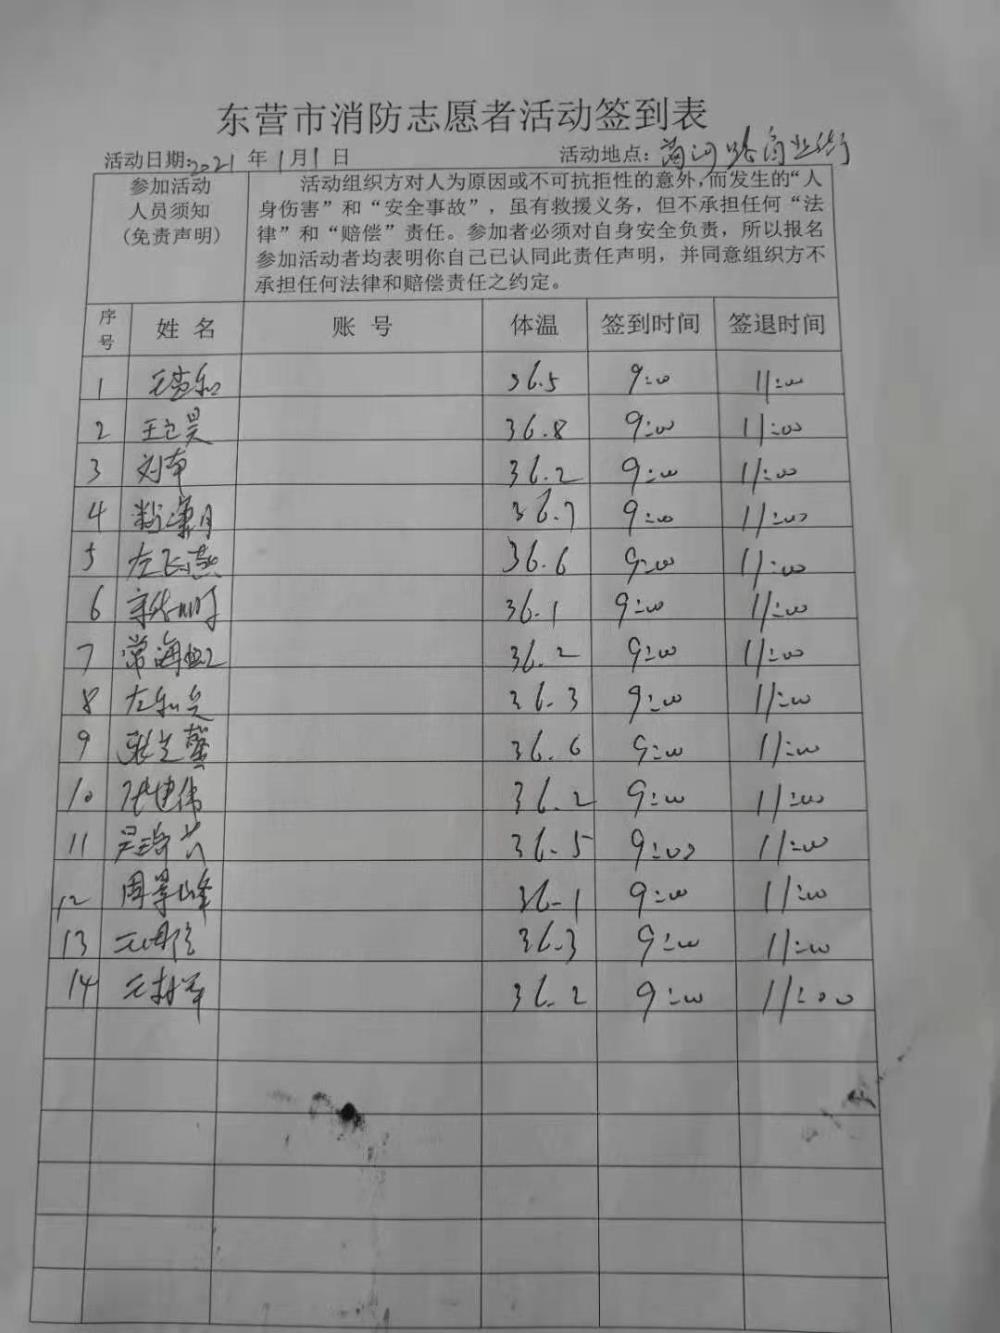 东营市消防志愿者活动签到表
活动日期:2021年1月1日 活动地点:黄河路商业街
参加活动
人员须知
(免责声明)
活动组织方对人为原因或不可抗拒性的意外,而发生的“人
身伤害”和“安全事故”,虽有救援义务,但不承担任何“法
律”和“赔偿”责任。参加者必须对自身安全负责,所以报名
参加活动者均表明你自己己认同此责任声明,并同意组织方不
承担任何法律和赔偿责任之约定。
序号 姓名 账号 体温 签到时间 签退时间
1 36.5 9:00 11:00
2 王卫昊 36.8 9:00 11:00
3 刘军 36.2 9:00 11:00
4 36.7 9:00 11:00
5 左飞燕 36.6 9:00 11:00
6 36.1 9:00 11:00
7 常海虹 36.2 9:00 11:00
8 36.3 9:00 11:00
9 36.6 9:00 11:00
10 张建伟 36.2 9:00 11:00
11 36.5 9:00 11:00
12 周景峰 36.1 9:00 11:00
13 36.3 9:00 11:00
14 36.2 9:00 11:00